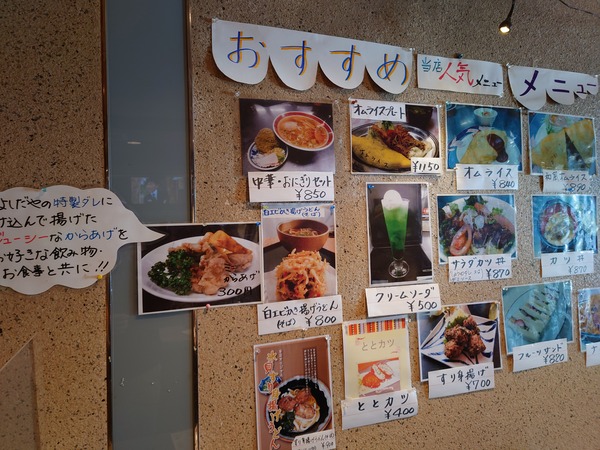 おすすめ
当店人気メニュー
メニュー
中華・おにぎりセット
¥850
オムライスプレート
¥1150
オムライス
¥840
オムライス
¥890
よしだやの特製ダレに
け込んで揚げた
ジューシーなからあげを
お好きな飲み物・
お食事と共に!!
からあげ
300円
白エビかき揚げうどん(そば)
白エビかき揚げうどん
(そば) ¥800
クリームソーダ
¥500
サラダカツ丼
¥870
カツ丼
¥870
ととカツ
ととカツ
¥400
すり身揚げ
¥700
フルーツサンド
¥820